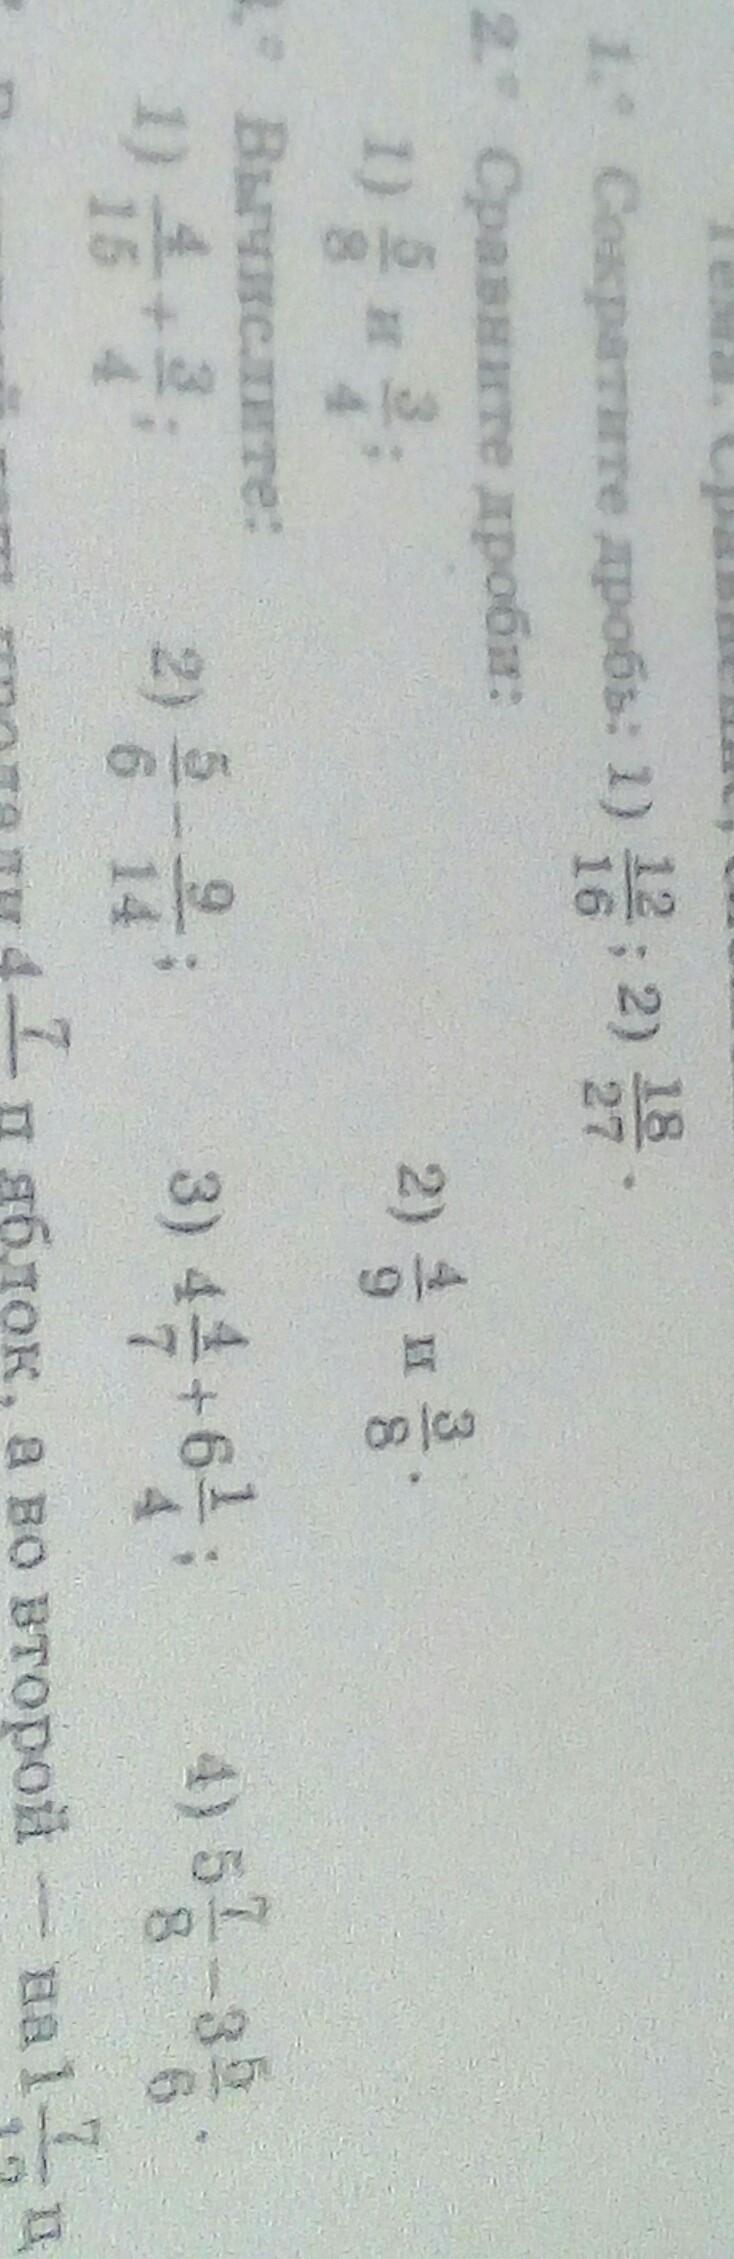 1.° Сократите дробь: 1) 12/16; 2) 18/27.
2.° Сравните дроби:
1) 5/8 и 3/4; 2) 4/9 и 3/8.
Вычислите:
1) 4/15 + 3/4; 2) 5/6 − 9/14; 3) 4 4/7 + 6 1/4; 4) 5 7/8 − 3 5/6.
ц яблок, а во второй — на 1